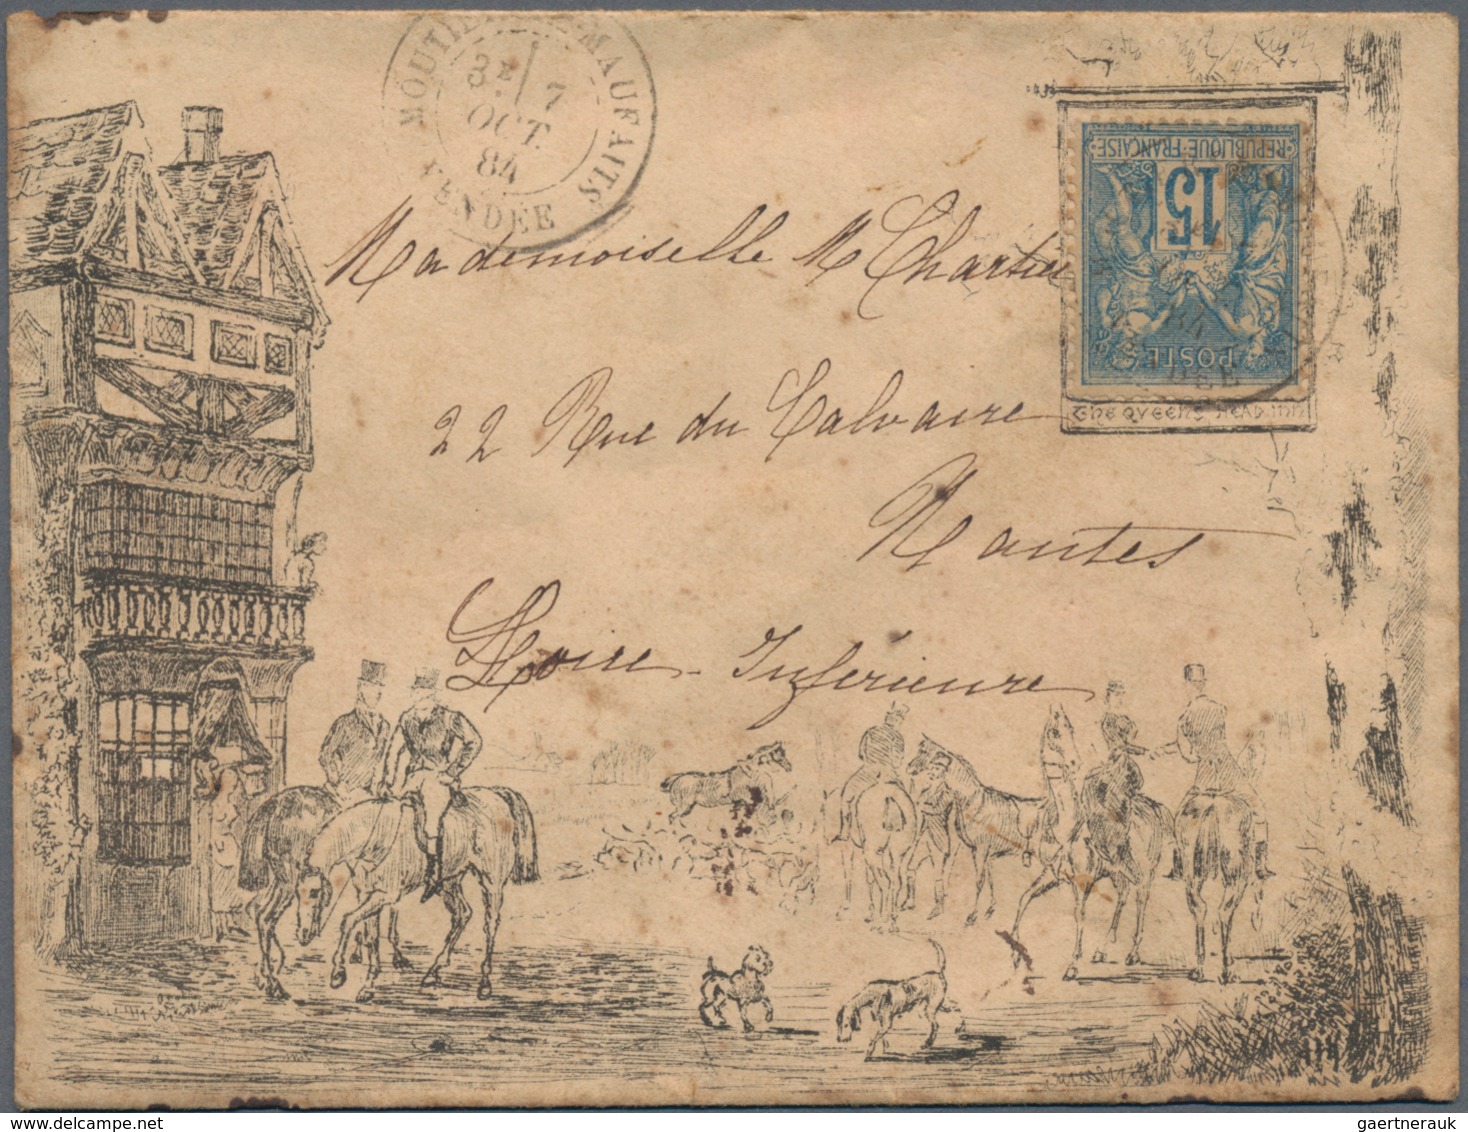 MOUTIL MAUFAITS
3E 7
OCT
84
VENDÉE
REPUBLIQUE FRANÇAISE
15
POSTE
84
The Queens HEAD INN
Mademoiselle M Chartier
22 Rue du Calvaire
Nantes
Loire-Inférieure
gaertnerauk